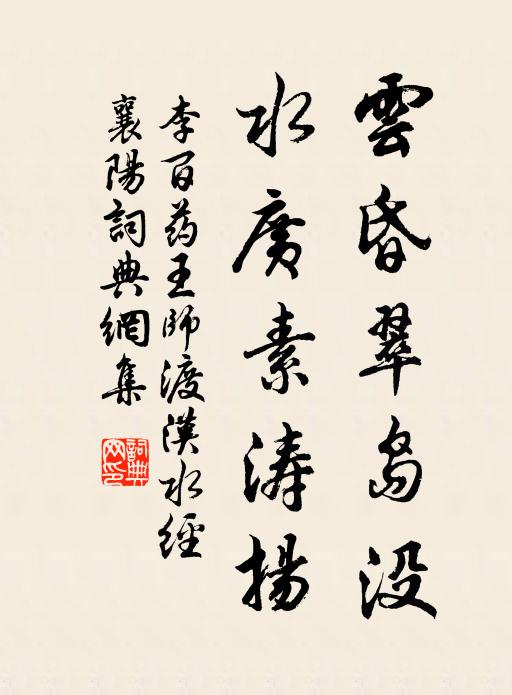 雲昏翠島没
水廣素濤揚
李百药王師渡漢水經
襄陽詞典網集
詞典網印